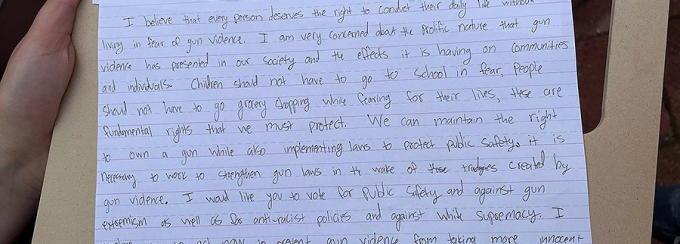 I believe that every person deserves the right to conduct their daily life without
living in fear of gun violence. I am very concerned about the prolific nature that gun
violence has presented in our society and the effects it is having on communities
and individuals. Children should not have to go to school in fear, People
should not have to go grocery shopping while fearing for their lives, these are
fundamental rights that we must protect. We can maintain the right
to own a gun while also implementing laws to protect public safety. it is
necessary to work to strengthen gun laws in the wake of those tradgies created by
gun violence. I would like you to vote for public safety and against gun
extremism as well as for anti-racist policies and against white supremacy. I
act now to prevent gun violence from taking more innocent